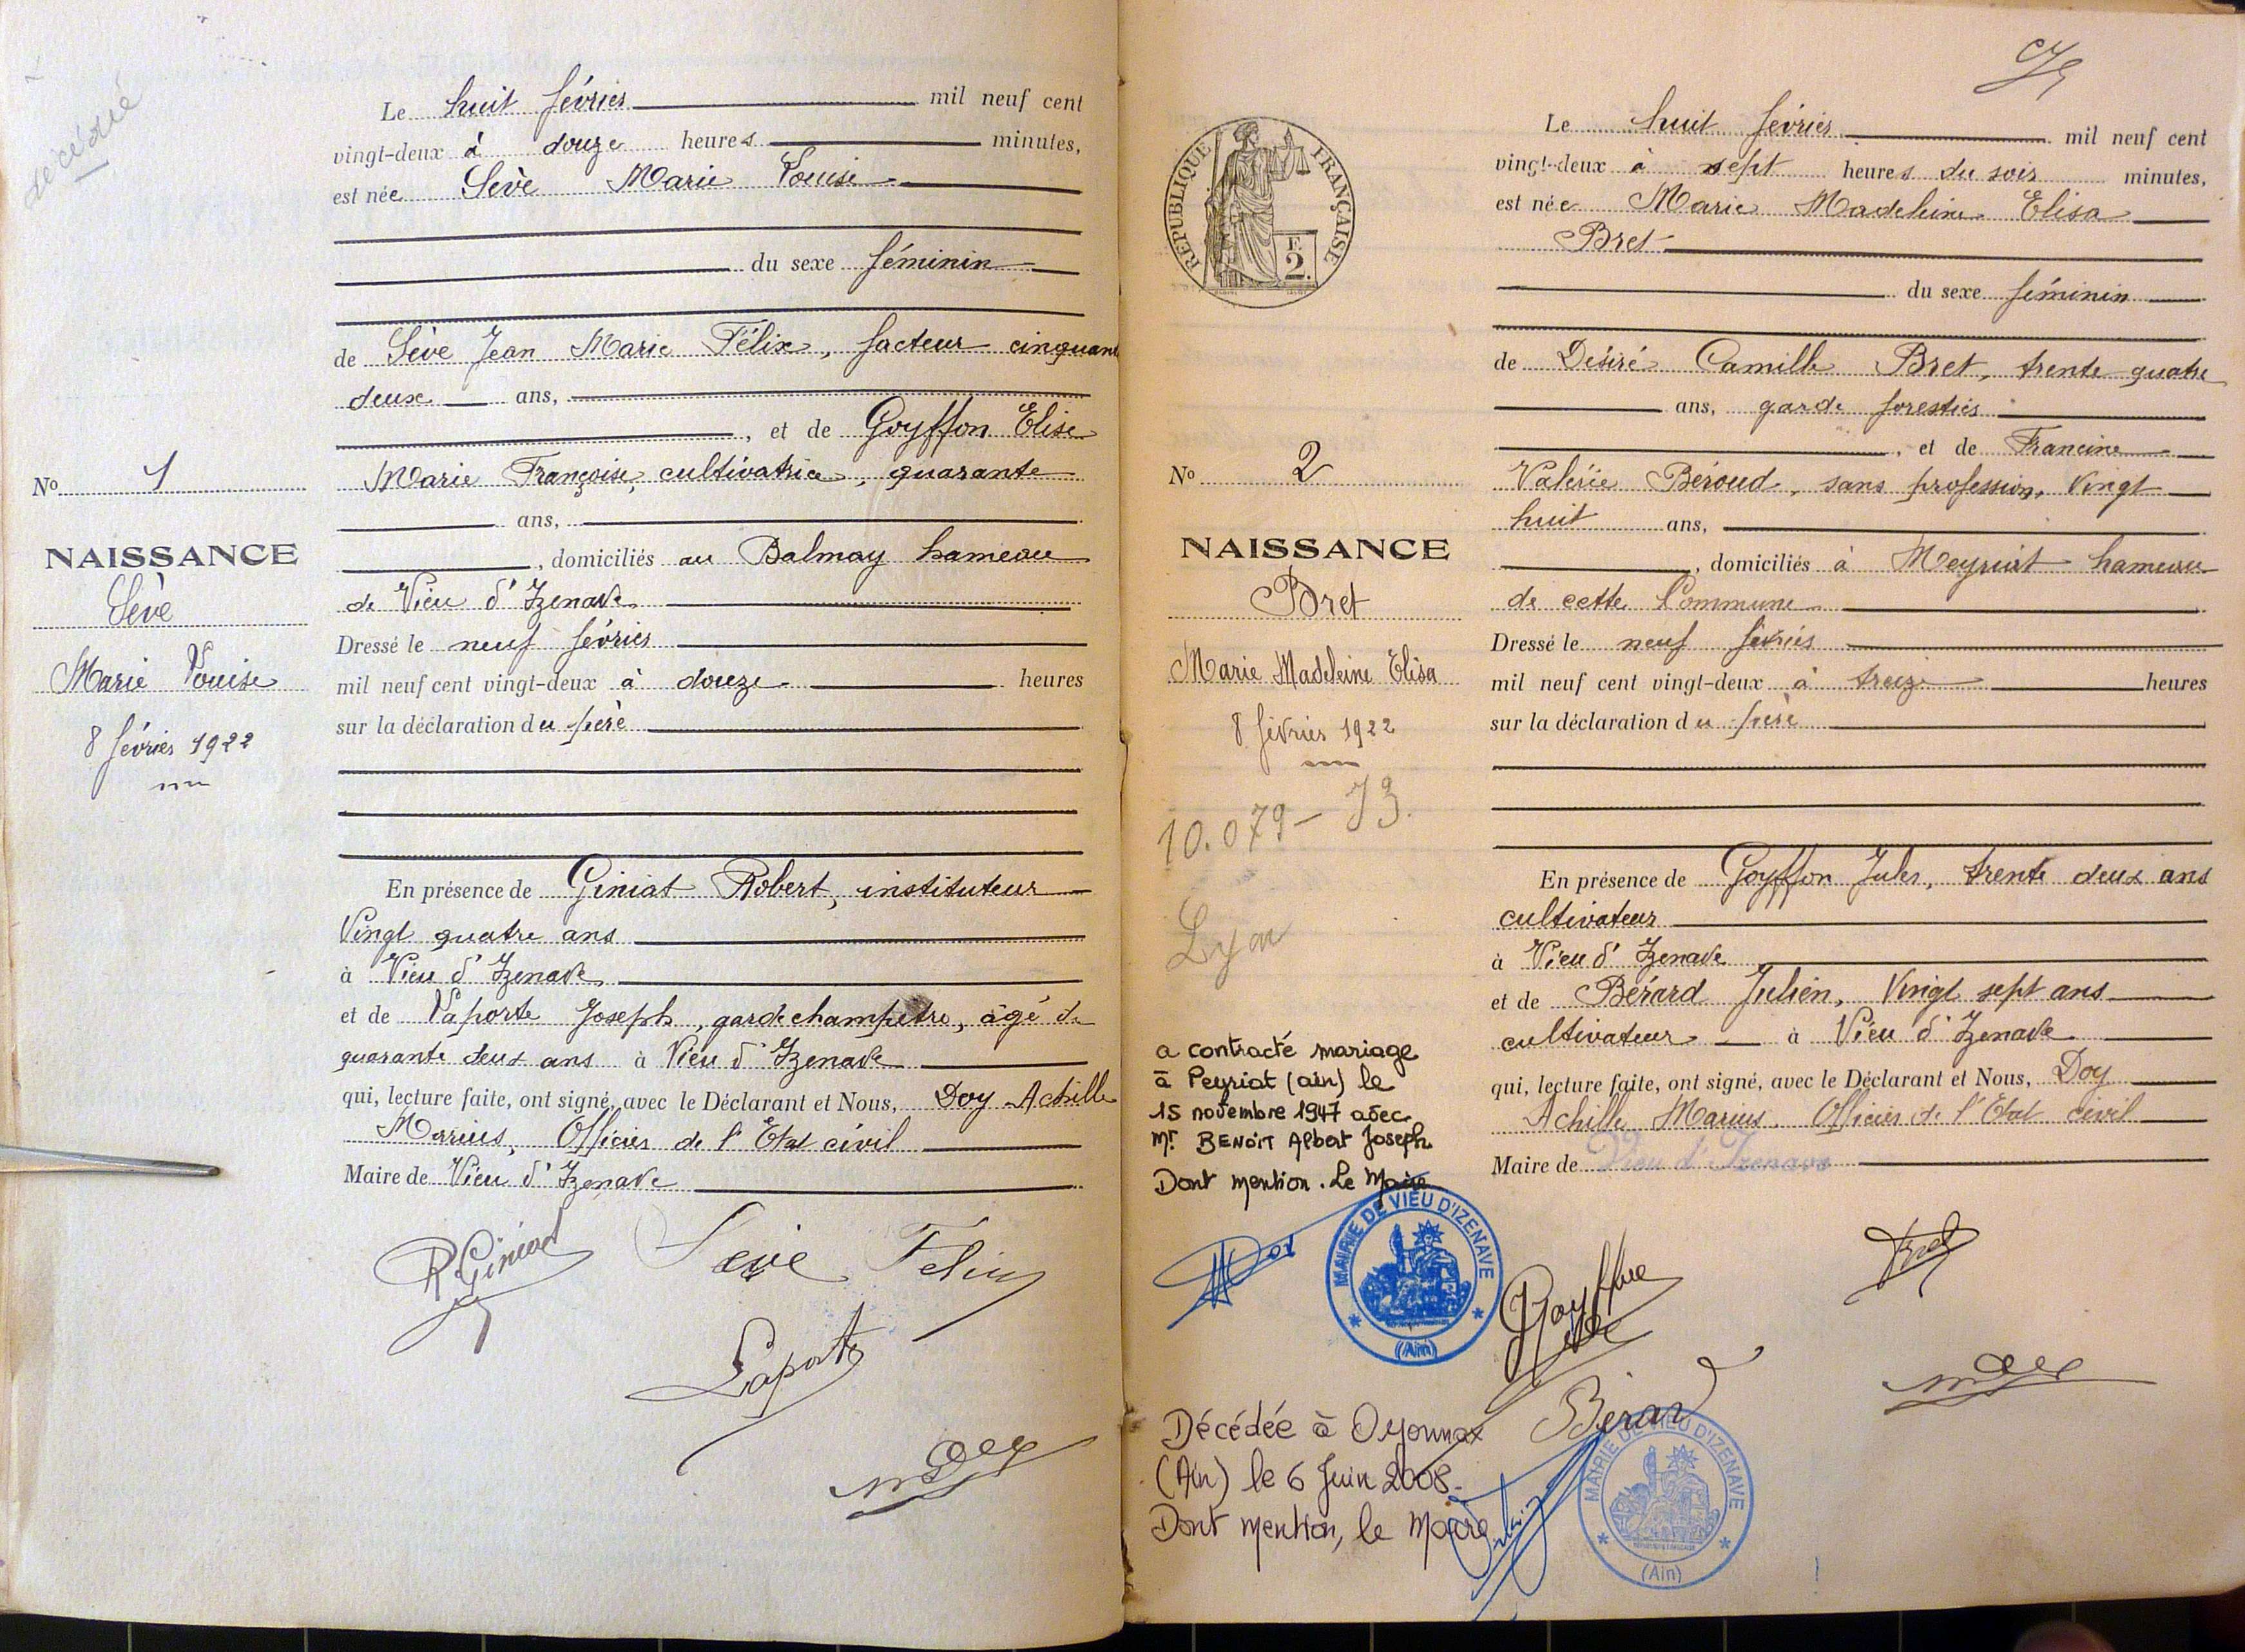 décédé
Le huit février mil neuf cent
vingt-deux à douze heures minutes,
est née Sève Marie Louise
du sexe féminin
de Sève Jean Marie Félix, facteur cinquant
deux ans,
, et de Goyffon Elise
No 1
Marie Françoise, cultivatrice, quarante
ans,
NAISSANCE
, domiciliés au Balmay hameau
Sève
de Vieu d'Izenave
Dressé le neuf février
Marie Louise
mil neuf cent vingt-deux à douze heures
8 février 1922
sur la déclaration du père
En présence de Giniat Robert, instituteur
Vingt quatre ans
à Vieu d'Izenave
et de Laporte Joseph, garde champêtre, âgé de
quarante deux ans à Vieu d'Izenave
qui, lecture faite, ont signé, avec le Déclarant et Nous, Doy Achille
Marius, Officier de l'Etat civil
Maire de Vieu d'Izenave
R Giniat
Seve Felix
Laporte
Le huit février mil neuf cent
vingt-deux à sept heures du soir minutes,
est née Marie Madeleine Elisa
Bret
du sexe féminin
RÉPUBLIQUE FRANÇAISE
F.
2.
de Désiré Camille Bret, trente-quatre
ans, garde forestier
, et de Francine
No 2
Valérie Béroud, sans profession, Vingt
huit ans,
NAISSANCE
, domiciliés à Meyriat hameau
Bret
de cette Commune
Dressé le neuf février
Marie Madeleine Elisa
mil neuf cent vingt-deux à treize heures
8 février 1922
sur la déclaration du père
10.079-73.
Lyon
En présence de Goyffon Jules, trente deux ans
cultivateur
à Vieu d'Izenave
et de Bérard Julien, Vingt sept ans
cultivateur à Vieu d'Izenave
qui, lecture faite, ont signé, avec le Déclarant et Nous, Doy
Achille Marius, Officier de l'Etat civil
Maire de Vieu d'Izenave
a contracté mariage
à Peyriat (ain) le
15 novembre 1947 avec
Mr BENOIT Albert Joseph
Dont mention. Le Maire
MAIRIE DE VIEU D'IZENAVE
(Ain)
Bret
Goyffon
Bérard
Décédée à Oyonnax
(Ain) le 6 Juin 2008.
Dont mention, le Maire
MAIRIE DE VIEU D'IZENAVE
(Ain)